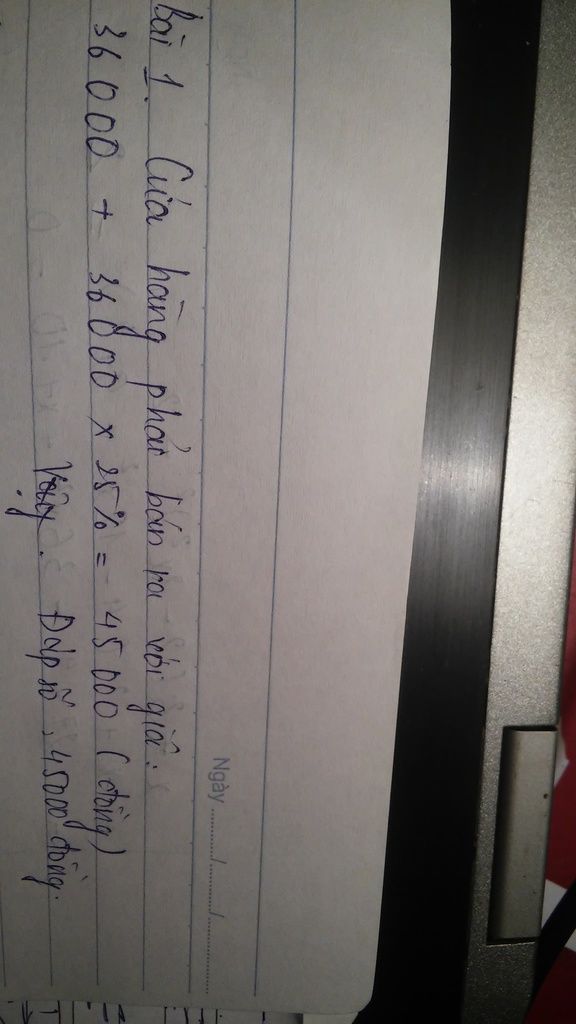 Ngày ......./......./.......
bài 1. Cửa hàng phải bán ra với giá:
36000 + 36000 x 25% = 45000 (đồng)
Vậy. Đáp số: 45000 đồng.